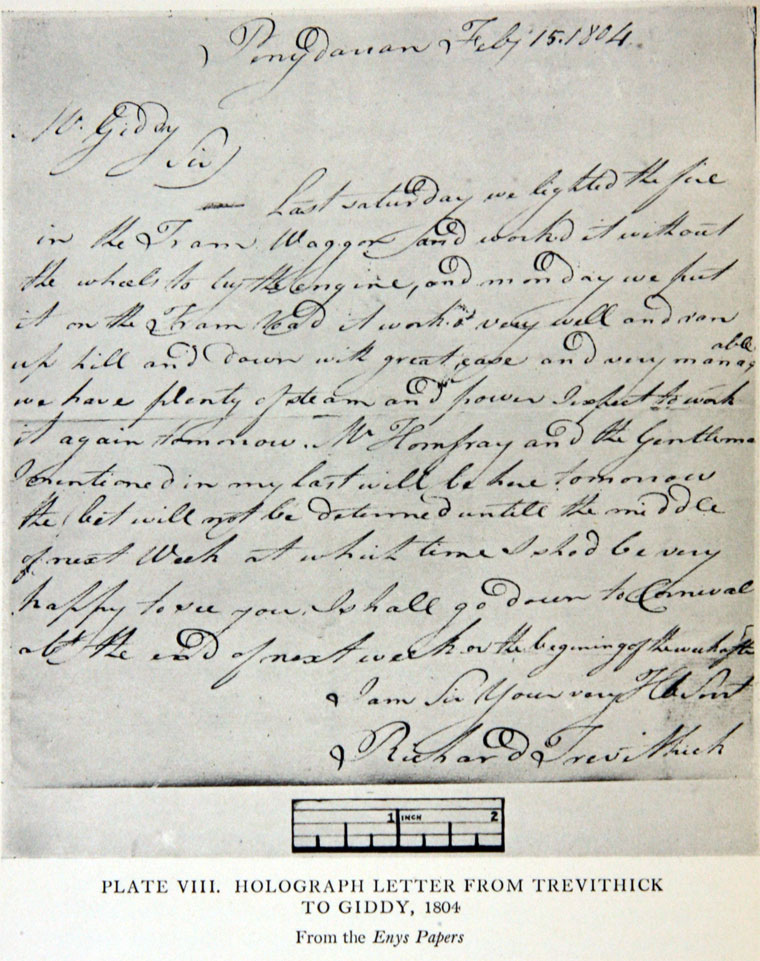 Penydarran Feby 15. 1804
Mr. Giddy
Sir
Last saturday we lighted the fire
in the Tram Waggon and work'd it without
the wheels to try the engine, and monday we put
it on the Tram Road it work'd very well and ran
up hill and down with great ease and very managable
we have plenty of steam and power I expect to work
it again tomorrow. Mr Homfray and the Gentleman
I mentioned in my last will be here tomorrow
the bet will not be determed untill the middle
of next Week at which time I shod be very
happy to see you. I shall go down to Cornwal
abt the end of next week or the begining of the week after
I am Sir Your very Hbe Sert
Richard Trevithick
1 INCH 2
PLATE VIII. HOLOGRAPH LETTER FROM TREVITHICK
TO GIDDY, 1804
From the Enys Papers